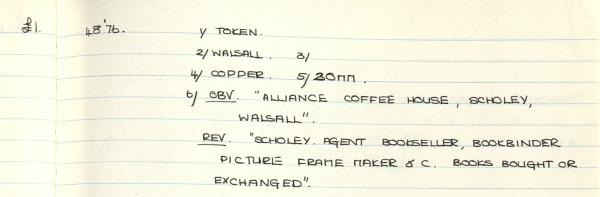 £1. 48'76. 1/ TOKEN.
2/ WALSALL. 3/
4/ COPPER. 5/ 20mm.
6/ OBV. "ALLIANCE COFFEE HOUSE, SCHOLEY,
WALSALL".
REV. "SCHOLEY. AGENT BOOKSELLER, BOOKBINDER
PICTURE FRAME MAKER & C. BOOKS BOUGHT OR
EXCHANGED".